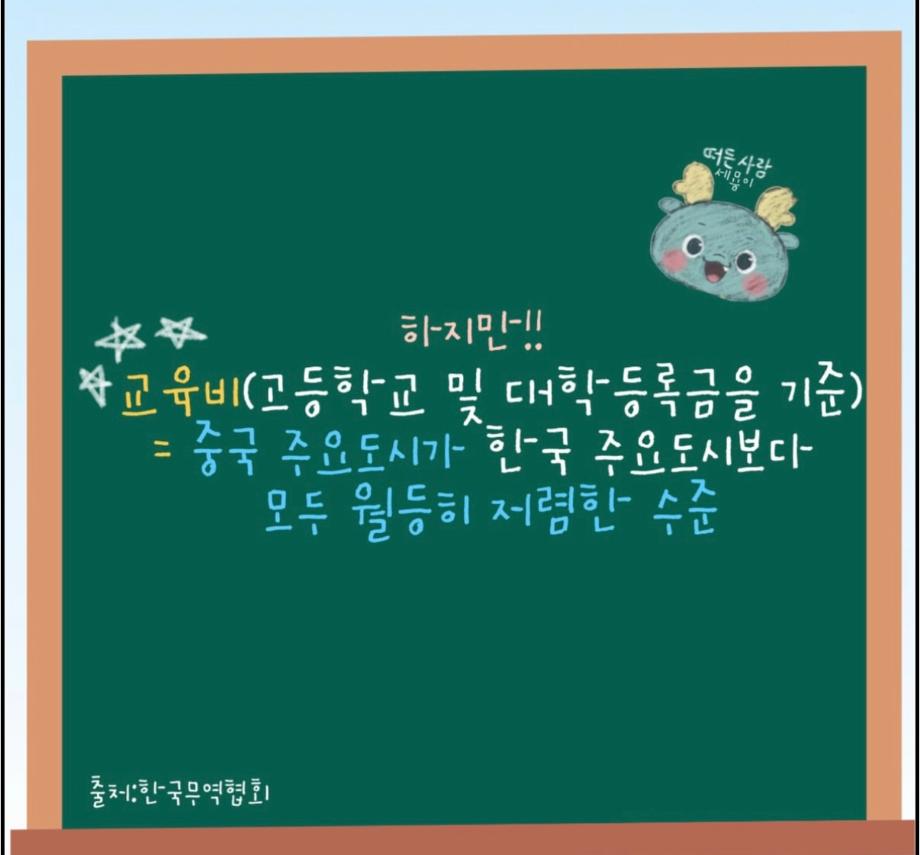 떠든사람
세뭉이
하지만!!
교육비(고등학교 및 대학등록금을 기준)
= 중국 주요도시가 한국 주요도시보다
모두 월등히 저렴한 수준
출처:한국무역협회